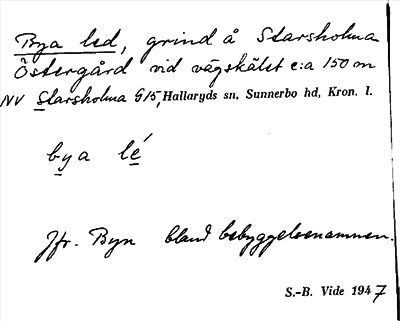 Bya led, grind å Starsholma
Östergård vid vägskälet c:a 150 m
NV Starsholma G/5, Hallaryds sn, Sunnerbo hd, Kron. l.
bya lé
Jfr. Byn bland bebyggelsenamnen.
S.-B. Vide 1947